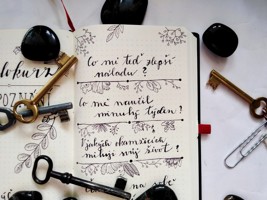 lokurz
POZNÁNÍ
Co mi teď zlepší
náladu?
Co mi naučil
minulý týden?
V jakých okamžicích
miluji svůj život?
na